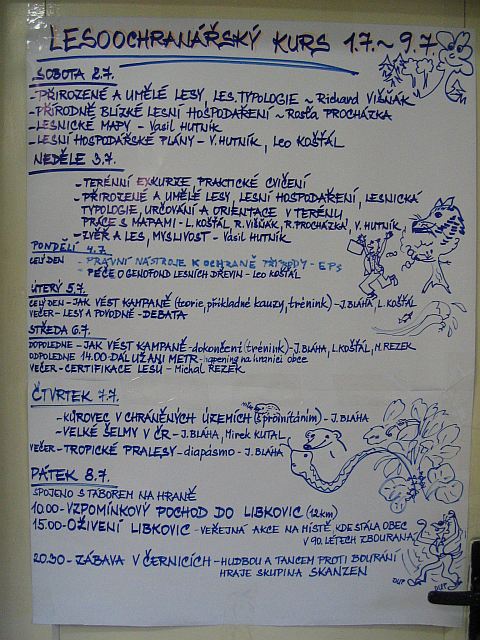 LESOOCHRANÁŘSKÝ KURS 1.7.~9.7.
SOBOTA 2.7.
-PŘIROZENÉ A UMĚLÉ LESY, LES. TYPOLOGIE ~ Richard VIŠŇÁK
-PŘÍRODNĚ BLÍZKÉ LESNÍ HOSPODAŘENÍ ~ Rosťa PROCHÁZKA
-LESNICKÉ MAPY - Vasil HUTNÍK
-LESNÍ HOSPODÁŘSKÉ PLÁNY - V. HUTNÍK, Leo KOŠŤÁL
NEDĚLE 3.7.
-TERÉNNÍ EXKURZE PRAKTICKÉ CVIČENÍ
-PŘIROZENÉ A UMĚLÉ LESY, LESNÍ HOSPODAŘENÍ, LESNICKÁ
TYPOLOGIE, URČOVÁNÍ A ORIENTACE V TERÉNU,
PRÁCE S MAPAMI - L. KOŠŤÁL, R. VIŠŇÁK, R. PROCHÁZKA, V. HUTNÍK
-ZVĚŘ A LES, MYSLIVOST - Vasil HUTNÍK
PONDĚLÍ 4.7.
CELÝ DEN - PRÁVNÍ NÁSTROJE K OCHRANĚ PŘÍRODY - EPS
- PÉČE O GENOFOND LESNÍCH DŘEVIN - Leo KOŠŤÁL
ÚTERÝ 5.7.
CELÝ DEN - JAK VÉST KAMPANĚ (teorie, příkladné kauzy, trénink) - J. BLÁHA, L. KOŠŤÁL
VEČER - LESY A POVODNĚ - DEBATA
STŘEDA 6.7.
DOPOLEDNE - JAK VÉST KAMPANĚ - dokončení (trénink) - J. BLÁHA, L. KOŠŤÁL, M. REZEK
ODPOLEDNE 14.00 DÁLUŽANI METR - hapening na hranici obce
VEČER - CERTIFIKACE LESŮ - Michal ŘEZEK
ČTVRTEK 7.7.
- KŮROVEC V CHRÁNĚNÝCH ÚZEMÍCH (s promítáním) - J. BLÁHA
- VELKÉ ŠELMY V ČR - J. BLÁHA, Mirek KUTAL
VEČER - TROPICKÉ PRALESY - diapásmo - J. BLÁHA
PÁTEK 8.7.
SPOJENO S TÁBOREM NA HRANĚ
10.00 - VZPOMÍNKOVÝ POCHOD DO LIBKOVIC (12km)
15.00 - OŽIVENÍ LIBKOVIC - VEŘEJNÁ AKCE NA MÍSTĚ, KDE STÁLA OBEC
V 90. LETECH ZBOURANÁ
20.30 - ZÁBAVA V ČERNICÍCH - HUDBOU A TANCEM PROTI BOURÁNÍ
HRAJE SKUPINA SKANZEN
DUP DUP